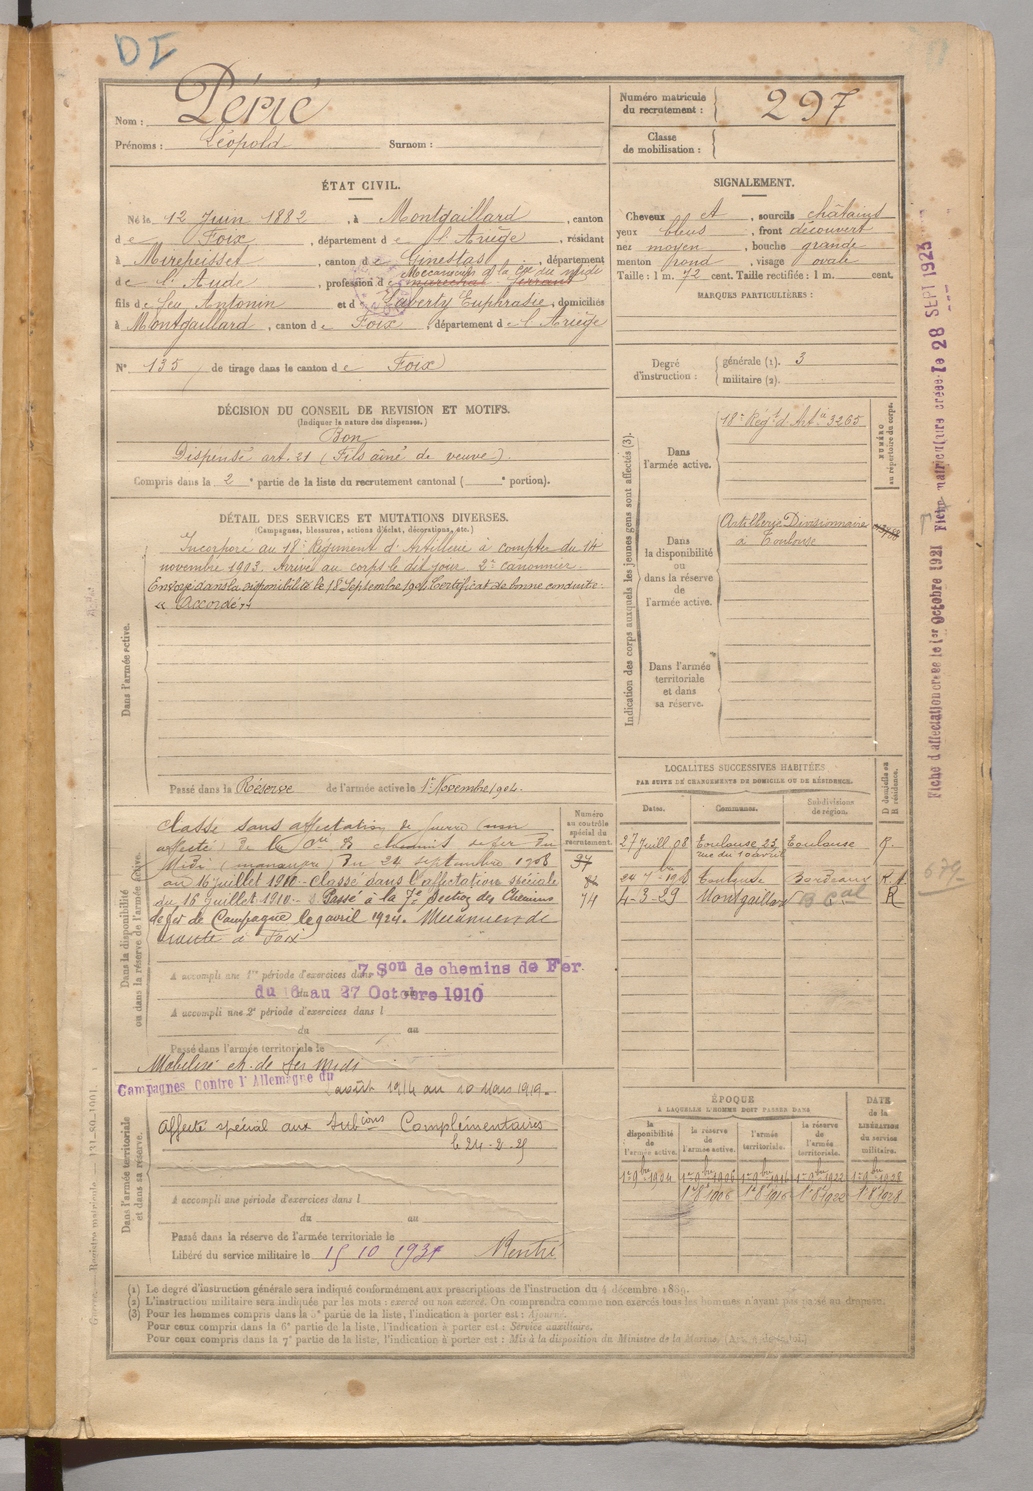 DI
Nom : Périé
Prénoms : Léopold Surnom :
Numéro matricule
du recrutement : 297
Classe
de mobilisation :
ÉTAT CIVIL.
Né le 12 Juin 1882, à Montgaillard, canton
de Foix, département de l'Ariège, résidant
à Mirepeisset, canton de Ginestas, département
de l'Aude, profession de Mécanicien à la Cie du midi
maréchal ferrant
fils de feu Antonin et de Laverty Euphrasie, domiciliés
à Montgaillard, canton de Foix, département de l'Ariège
N° 135 de tirage dans le canton de Foix
SIGNALEMENT.
Cheveux et, sourcils châtains
yeux bleus, front découvert
nez moyen, bouche grande
menton rond, visage ovale
Taille : 1 m. 72 cent. Taille rectifiée : 1 m. cent.
MARQUES PARTICULIÈRES :
Degré
d'instruction :
générale (1). 3
militaire (2).
DÉCISION DU CONSEIL DE REVISION ET MOTIFS.
(Indiquer la nature des dispenses.)
Bon
Dispensé art. 21 (Fils aîné de veuve)
Compris dans la 2e partie de la liste du recrutement cantonal ( e portion).
DÉTAIL DES SERVICES ET MUTATIONS DIVERSES.
(Campagnes, blessures, actions d'éclat, décorations, etc.)
Dans l'armée active.
Incorporé au 18e Régiment d'Artillerie à compter du 14
novembre 1903. Arrivé au corps le dit jour. 2e canonnier.
Envoyé dans la disponibilité le 18 Septembre 1904. Certificat de bonne conduite
"Accordé"
Passé dans la Réserve de l'armée active le 1er Novembre 1904.
Indication des corps auxquels les jeunes gens sont affectés (3).
NUMÉRO
au répertoire du corps.
Dans
l'armée active.
18e Régt d'Artie 3265
Dans
la disponibilité
ou
dans la réserve
de
l'armée active.
Artillerie Divisionnaire
à Toulouse
Dans l'armée
territoriale
et dans
sa réserve.
Dans la disponibilité
ou dans la réserve de l'armée active.
Numéro
au contrôle
spécial du
recrutement.
Classé sans affectation de guerre (non
affecté) de la Cie des chemins de fer du
Midi (manœuvre) du 24 septembre 1908
au 16 juillet 1910 - Classé dans l'affectation spéciale
du 16 juillet 1910 - Passé à la 7e Section des Chemins
de fer de Campagne le avril 1924. Mécanicien de
route à Foix
74
A accompli une 1re période d'exercices dans 7 Son de chemins de Fer.
du 6 au 27 Octobre 1910
A accompli une 2e période d'exercices dans l
du au
Passé dans l'armée territoriale le
Mobilisé ch. de fer Midi
Campagnes Contre l'Allemagne du
2 août 1914 au 10 Mars 1919.
Dans l'armée territoriale
et dans sa réserve.
Affecté spécial aux Subons Complémentaires
le 24-2-25
A accompli une période d'exercices dans l
du au
Passé dans la réserve de l'armée territoriale le
Libéré du service militaire le 15 10 1931
LOCALITÉS SUCCESSIVES HABITÉES
PAR SUITE DE CHANGEMENTS DE DOMICILE OU DE RÉSIDENCE.
D domicile ou
R résidence.
Dates. Communes. Subdivisions
de région.
27 Juill 08 Toulouse 23 Toulouse R.
rue du 10 avril
24 7bre 1908 Toulouse Bordeaux R.
4-3-29 Montgaillard R
679
ÉPOQUE
À LAQUELLE L'HOMME DOIT PASSER DANS
DATE
de la
LIBÉRATION
du service
militaire.
la
disponibilité
de
l'armée active.
la réserve
de
l'armée active.
l'armée
territoriale.
la réserve
de
l'armée
territoriale.
1er 9bre 1904 1er 9bre 1906 1er 9bre 1916 1er 9bre 1922 1er 9bre 1928
1er 8 1906 1er 8 1916 1er 8 1922 1er 8 1928
Fiche d'affectation créée le 1er Octobre 1921 Fiche matriculaire créée le 28 SEPT 1923
(1) Le degré d'instruction générale sera indiqué conformément aux prescriptions de l'instruction du 4 décembre 1889.
(2) L'instruction militaire sera indiquée par les mots : exercé ou non exercé. On comprendra comme non exercés tous les hommes n'ayant pas passé au drapeau.
(3) Pour les hommes compris dans la 5e partie de la liste, l'indication à porter est : Ajourné.
Pour ceux compris dans la 6e partie de la liste, l'indication à porter est : Service auxiliaire.
Pour ceux compris dans la 7e partie de la liste, l'indication à porter est : Mis à la disposition du Ministre de la Marine.